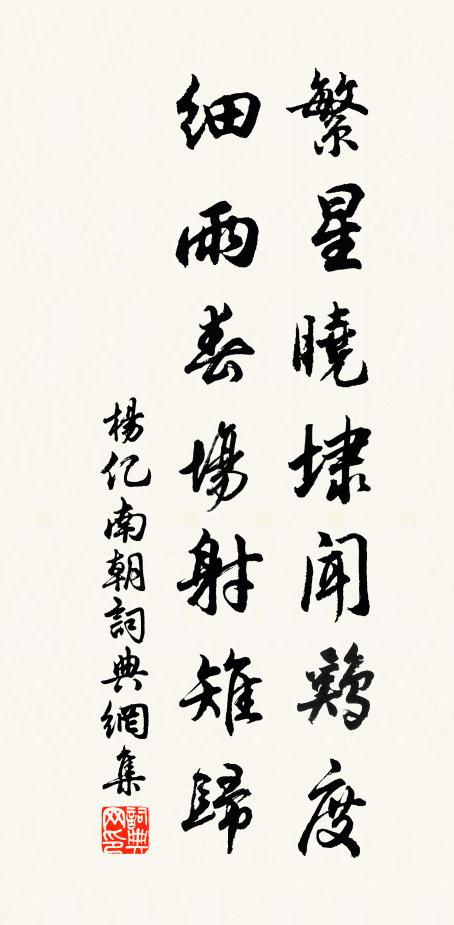 繁星曉埭聞鷄度
細雨春場射雉歸
楊亿南朝詞典網集
詞典网印